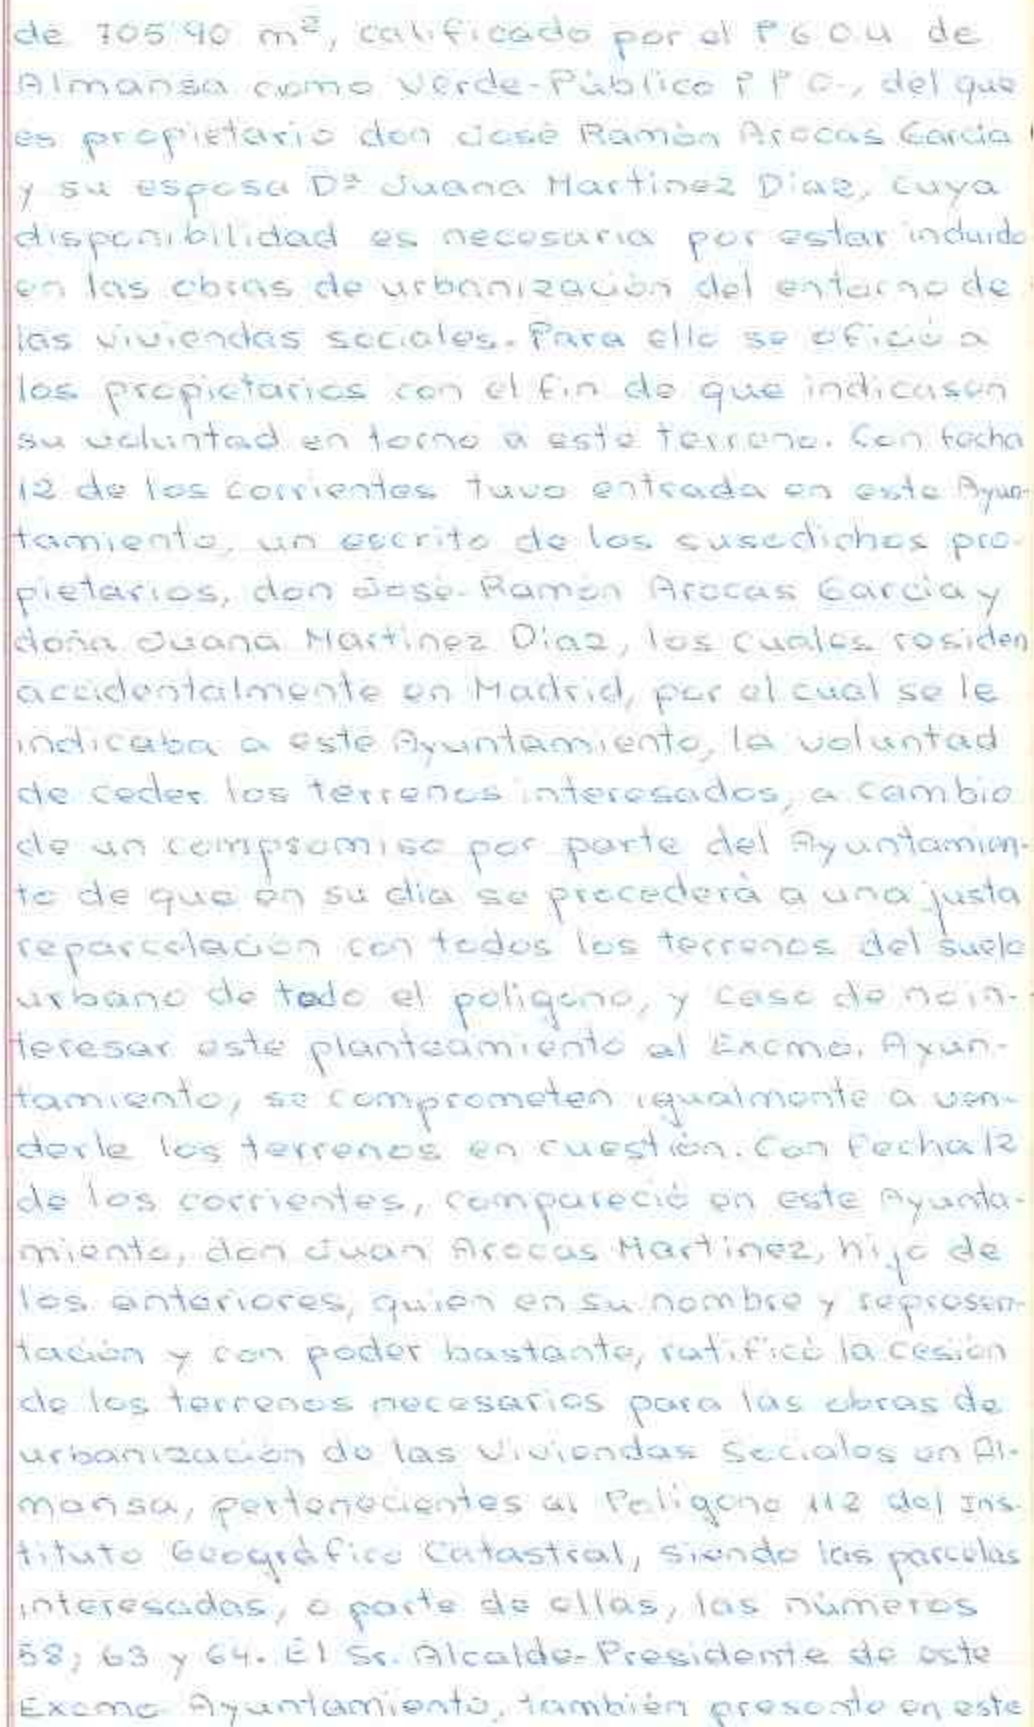 de 705'90 m², calificado por el P G O U de
Almansa como Verde-Público P P O-, del que
es propietario don José Ramón Arocas García
y su esposa Dª Juana Martínez Díaz, cuya
disponibilidad es necesaria por estar incluido
en las obras de urbanización del entorno de
las viviendas sociales. Para ello se ofició a
los propietarios con el fin de que indicasen
su voluntad en torno a este terreno. Con fecha
12 de los corrientes tuvo entrada en este Ayun-
tamiento, un escrito de los susodichos pro-
pietarios, don José-Ramón Arocas García y
doña Juana Martínez Díaz, los cuales residen
accidentalmente en Madrid, por el cual se le
indicaba a este Ayuntamiento, la voluntad
de ceder los terrenos interesados, a cambio
de un compromiso por parte del Ayuntamien-
to de que en su día se procederá a una justa
reparcelación con todos los terrenos del suelo
urbano de todo el polígono, y caso de no in-
teresar este planteamiento al Excmo. Ayun-
tamiento, se comprometen igualmente a ven-
derle los terrenos en cuestión. Con fecha 12
de los corrientes, compareció en este Ayunta-
miento, don Juan Arocas Martínez, hijo de
los anteriores, quien en su nombre y represen-
tación y con poder bastante, ratificó la cesión
de los terrenos necesarios para las obras de
urbanización de las Viviendas Sociales en Al-
mansa, pertenecientes al Polígono 112 del Ins-
tituto Geográfico Catastral, siendo las parcelas
interesadas, o parte de ellas, las números
58; 63 y 64. El Sr. Alcalde-Presidente de este
Excmo Ayuntamiento, también presente en este